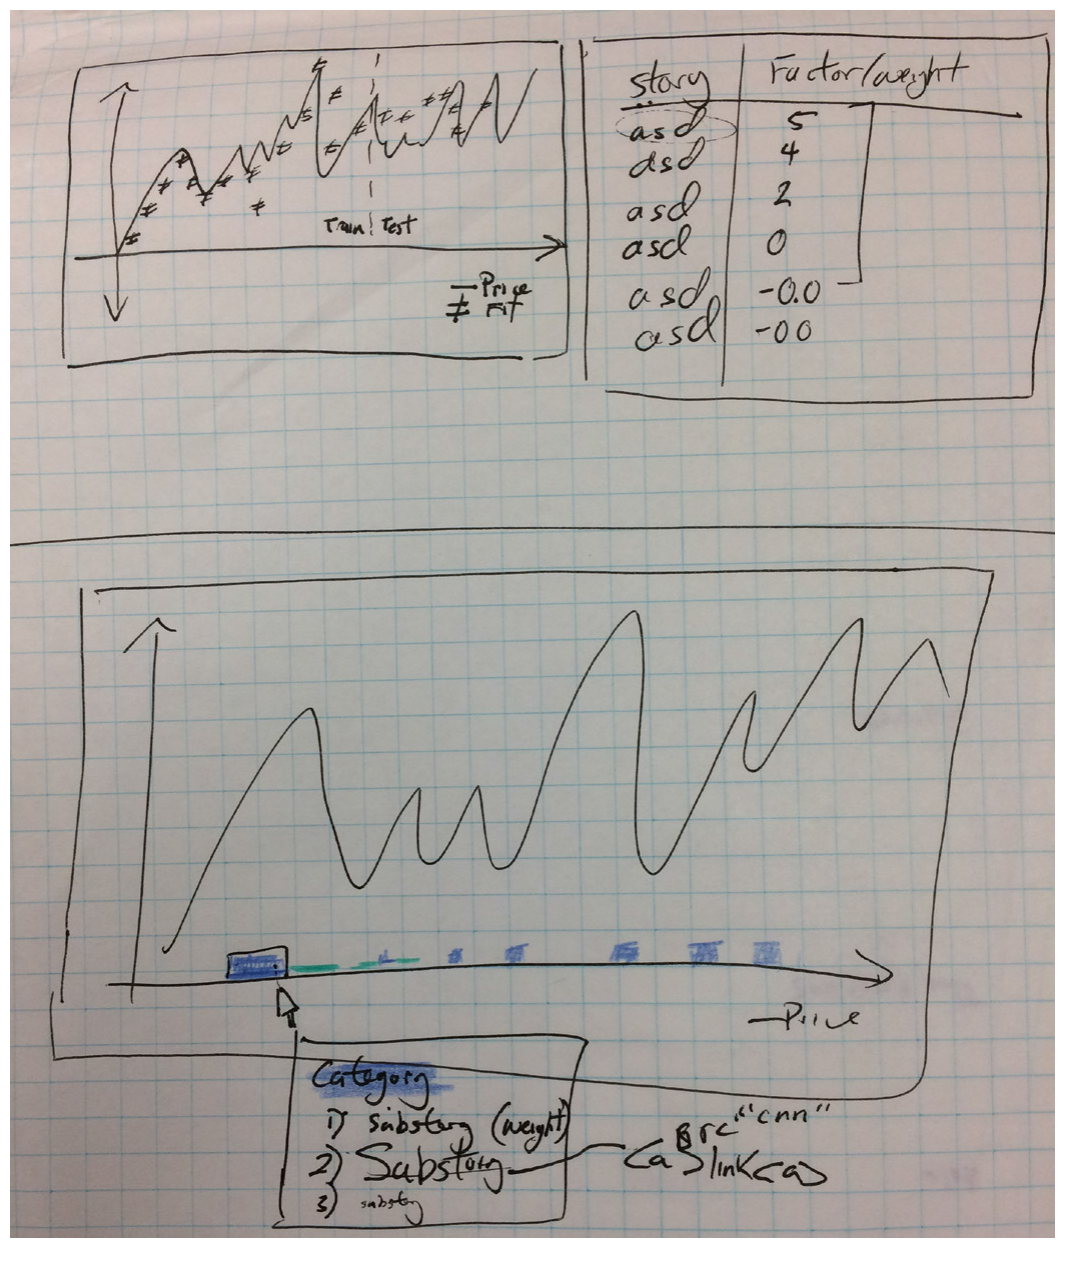 Train Test
Price
Fit
story Factor/weight
asd 5
asd 4
asd 2
asd 0
asd -0.0
asd -00
Price
Category
1) substory (weight)
2) Substory
3) substy
src "cnn"
<a>link<a>